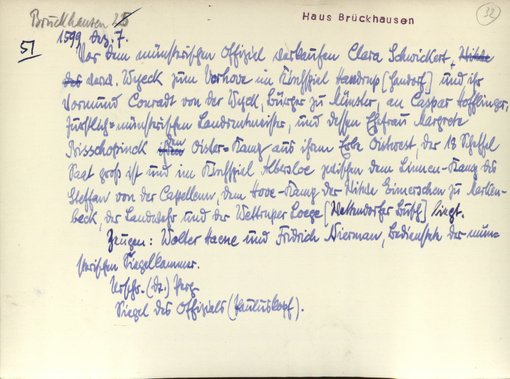 Brückhausen
Haus Brückhausen
32
51
1599 Dez. 7.
Vor dem münsterischen Offizial verkaufen Clara Schwickert,
des verst. Wyeck zum Verhove im Kirchspiel Handrup [Handorf] und ihr
Vormund Conradt von der Wyck, Bürger zu Münster, an Caspar Höfflinger,
Fürstlich-münsterischen Landrentmeister, und dessen Ehefrau Margrete
Bisschopinck Oister-Kamp aus ihrem Erbe Oistwest, der 18 Scheffel
Saat groß ist und im Kirchspiel Albersloe zwischen dem Linnen-Kamp des
Steffan von der Cappellenn, dem Hove-Kamp der zu Mecken-
beck, der Landwehr und der Wettringer Loege [Wettendorfer Busch] liegt.
Zeugen: Wolter Haene und Fridrich Nierman, Bedienstete der mün-
sterischen Siegelkammer.
Urschr. (dt.) Perg.
Siegel des Offizials (Pauluskopf).